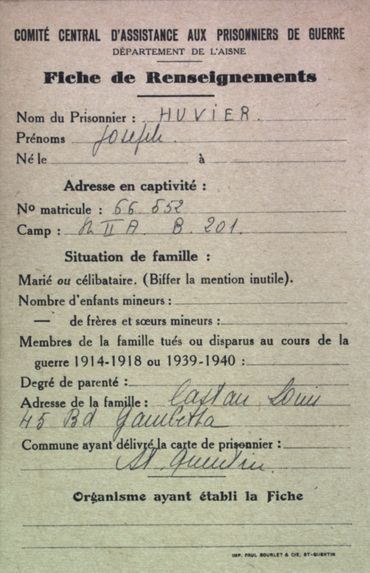 COMITÉ CENTRAL D'ASSISTANCE AUX PRISONNIERS DE GUERRE
DÉPARTEMENT DE L'AISNE
Fiche de Renseignements
Nom du Prisonnier : HUVIER.
Prénoms Joseph
Né le à
Adresse en captivité :
No matricule : 66 552
Camp : II A B. 201.
Situation de famille :
Marié ou célibataire. (Biffer la mention inutile).
Nombre d'enfants mineurs :
— de frères et sœurs mineurs :
Membres de la famille tués ou disparus au cours de la
guerre 1914-1918 ou 1939-1940 :
Degré de parenté :
Adresse de la famille : Louis
45 Bd Gambetta
Commune ayant délivré la carte de prisonnier :
St Quentin
Organisme ayant établi la Fiche
IMP. PAUL BOURLET & CIE, ST-QUENTIN